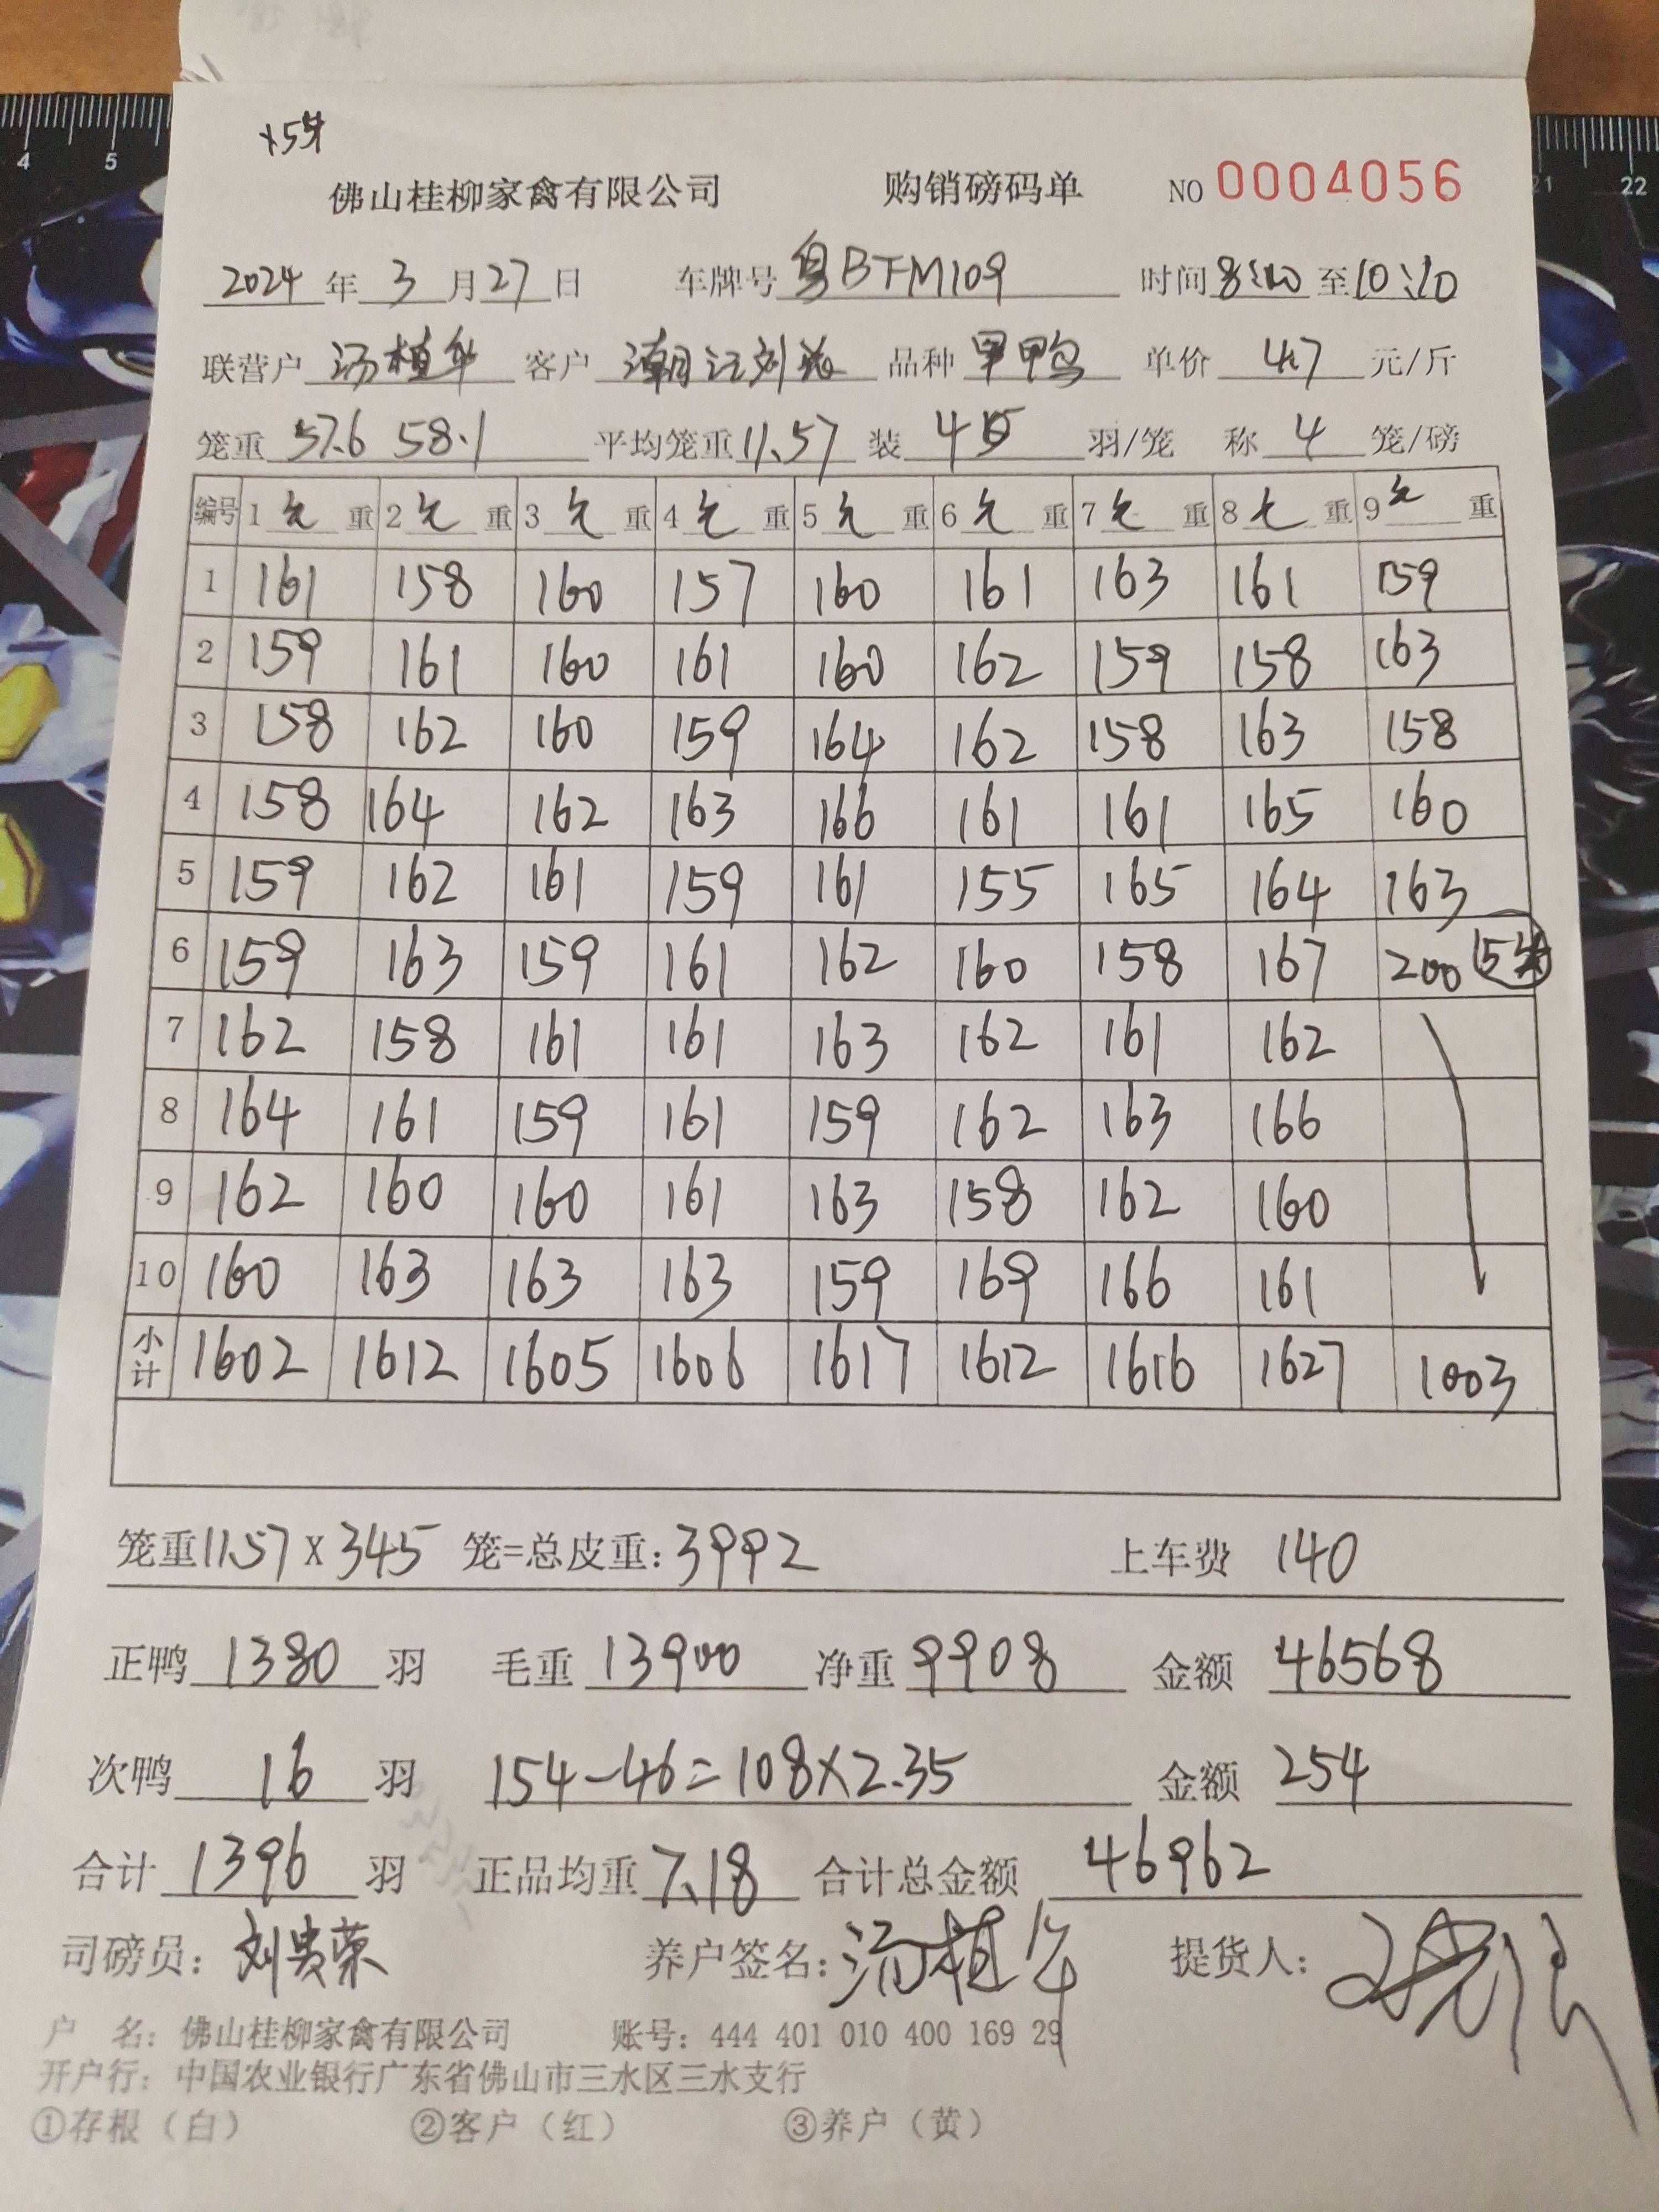 佛山桂柳家禽有限公司 购销磅码单 NO 0004056
2024 年 3 月 27 日 车牌号 粤BTM109 时间 8:00 至 10:10
联营户 汤植年 客户 潮江刘 品种 单鸭 单价 4.7 元/斤
笼重 57.6 58.1 平均笼重 11.57 装 4 羽/笼 称 4 笼/磅
编号 1 重 2 重 3 重 4 重 5 重 6 重 7 重 8 重 9 重
1 161 158 160 157 160 161 163 161 159
2 159 161 160 161 160 162 159 158 163
3 158 162 160 159 164 162 158 163 158
4 158 164 162 163 166 161 161 165 160
5 159 162 161 159 161 155 165 164 163
6 159 163 159 161 162 160 158 167 200
7 162 158 161 161 163 162 161 162
8 164 161 159 161 159 162 163 166
9 162 160 160 161 163 158 162 160
10 160 163 163 163 159 169 166 161
小计 1602 1612 1605 1606 1617 1612 1616 1627 1003
笼重 11.57 X 345 笼=总皮重: 3992 上车费 140
正鸭 1380 羽 毛重 13900 净重 9908 金额 46568
次鸭 16 羽 154-46=108×2.35 金额 254
合计 1396 羽 正品均重 7.18 合计总金额 46962
司磅员: 刘贵荣 养户签名: 汤植年 提货人:
户 名: 佛山桂柳家禽有限公司 账号: 444 401 010 400 169 29
开户行: 中国农业银行广东省佛山市三水区三水支行
①存根（白） ②客户（红） ③养户（黄）